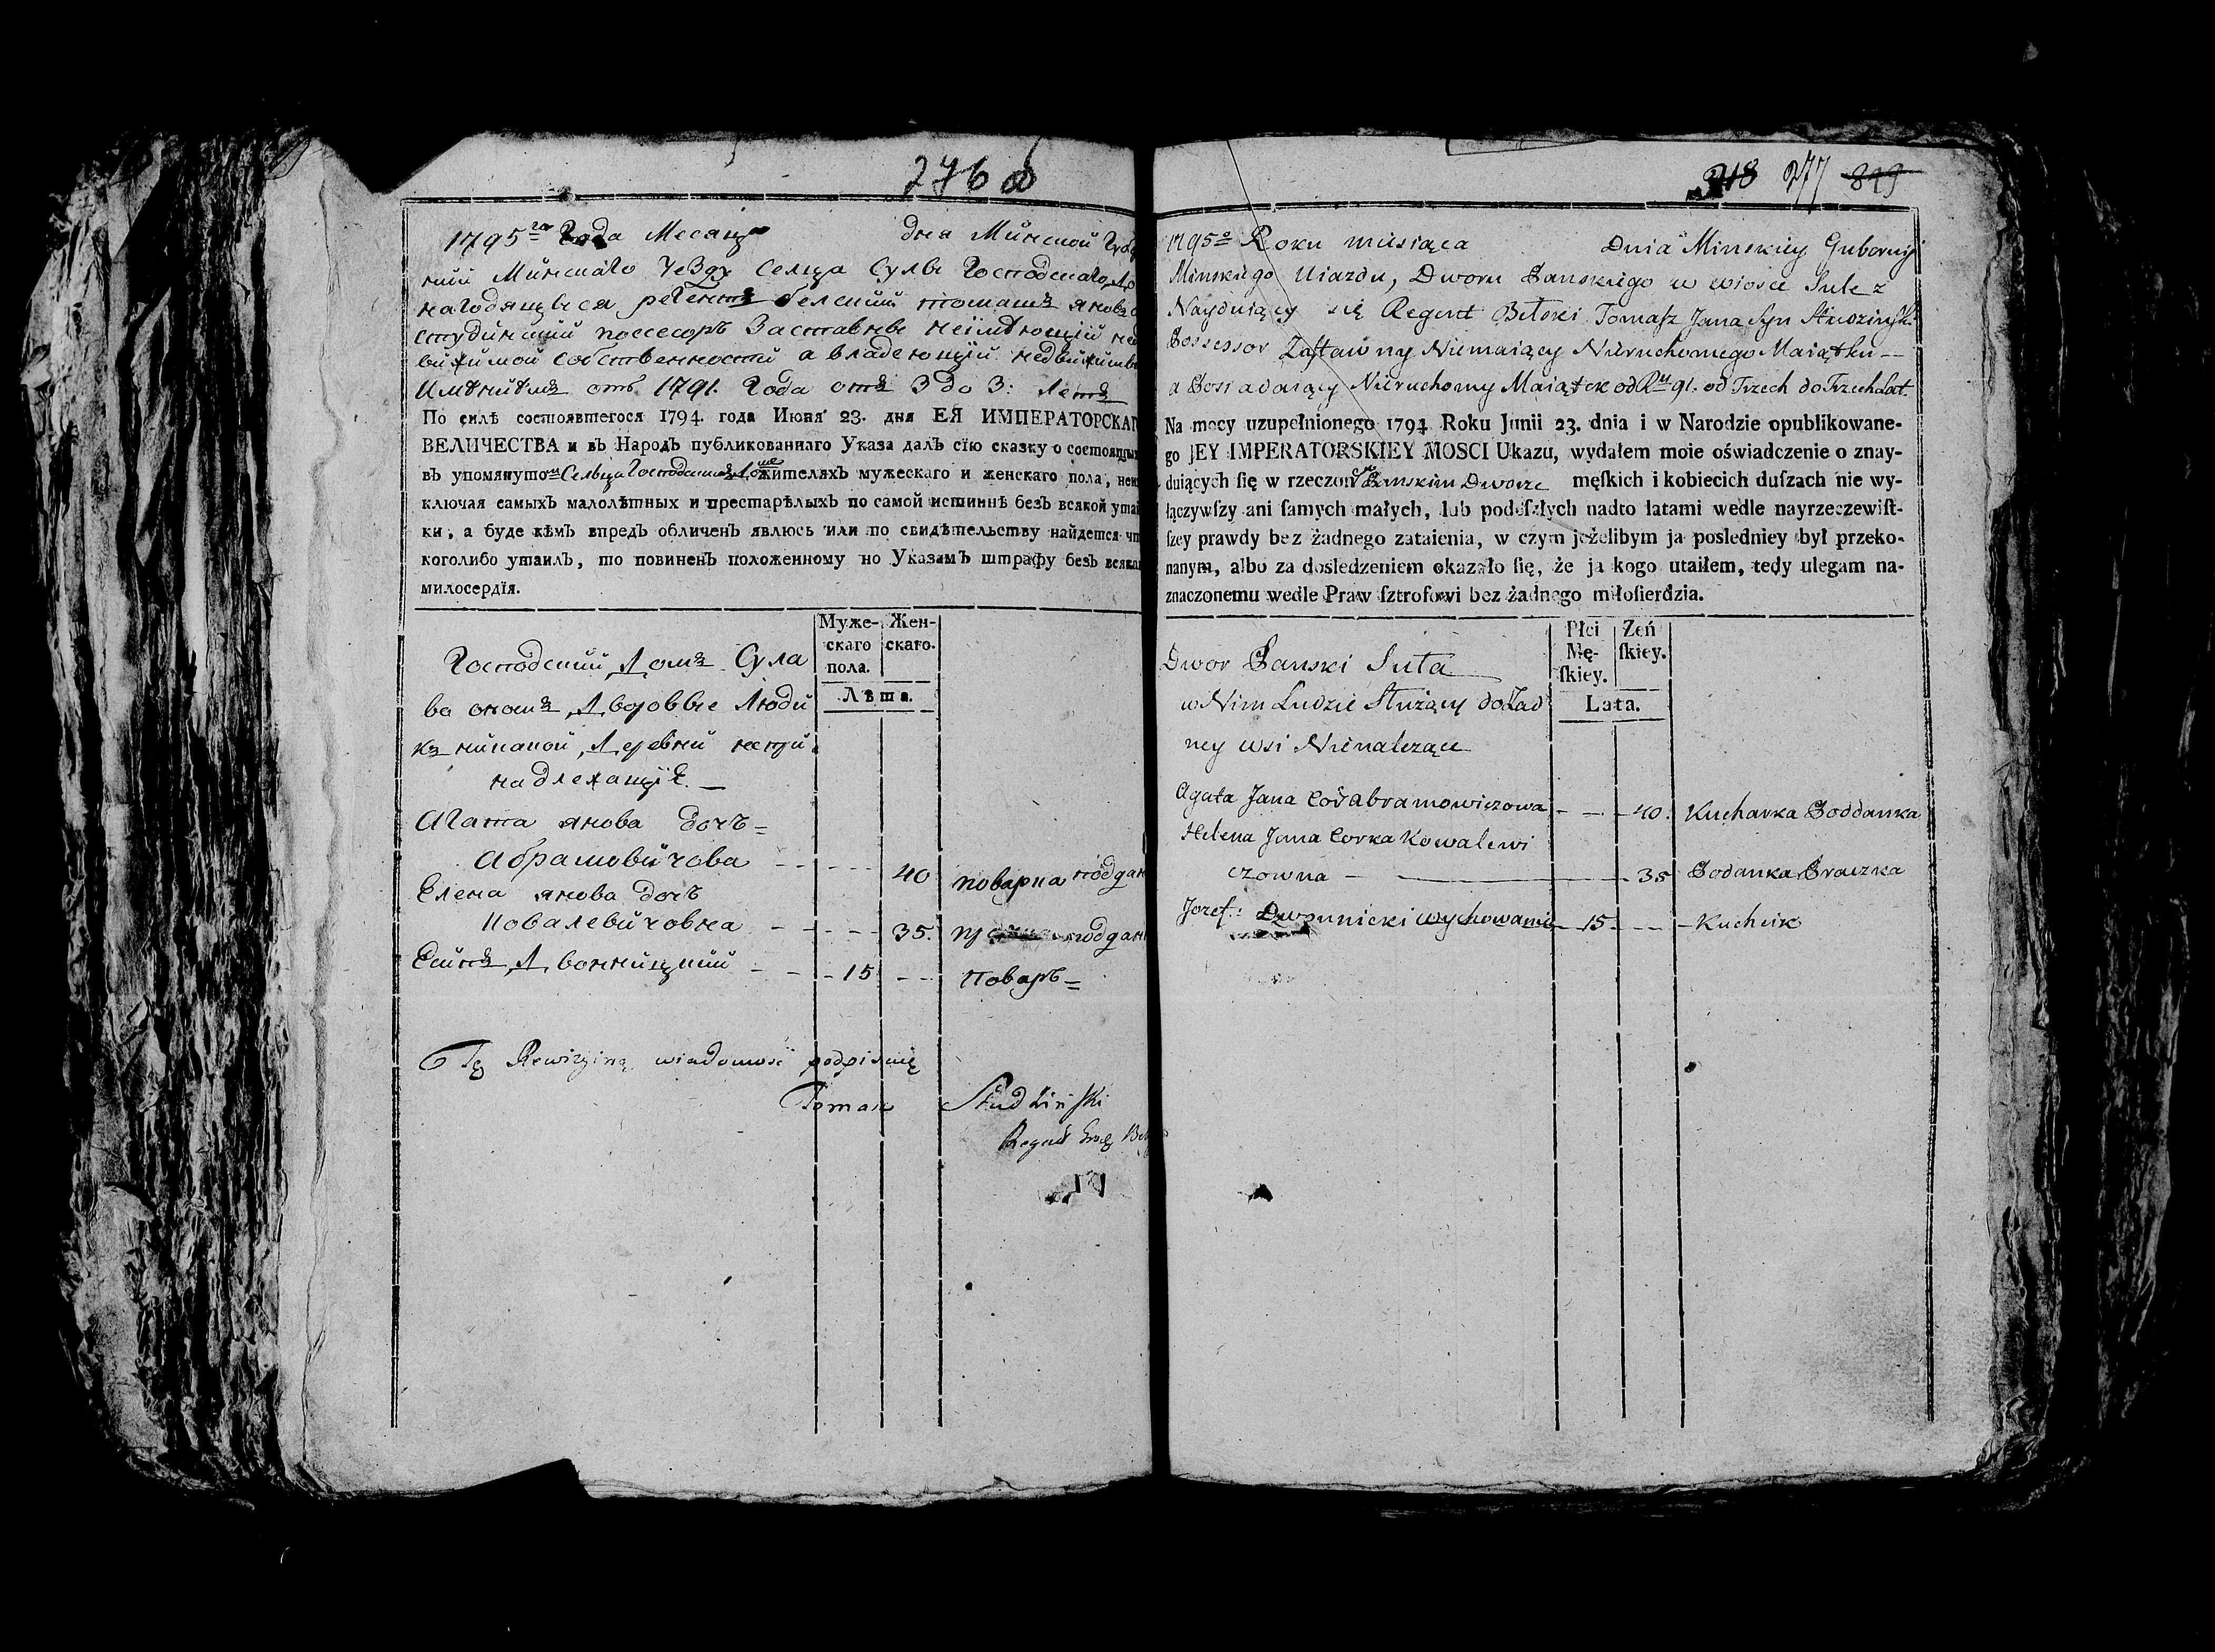 276 об
1795го Года Месяца дня Минской Губе
нии Минскаго Уезду Сельца Сулы Господскаго До
находящыйся регентъ белский томашъ яновъ с
студзинский поссесоръ Заставный неимеющий нед
вижимой собственности а владеющий недвижимы
Имениемъ отъ 1791. Года отъ 3 до 3: Летъ
По силѣ состоявшегося 1794. года Июня 23. дня ЕЯ ИМПЕРАТОРСКАГ
ВЕЛИЧЕСТВА и въ Народъ публикованнаго Указа далъ сїю сказку о состоящих
въ упомянутом Сельца Господскомъ Доме жителяхъ мужескаго и женскаго пола, неис
ключая самыхъ малолѣтныхъ и престарѣлыхъ по самой истиннѣ безъ всякой утай
ки, а буде кѣмъ впредъ обличенъ явлюсь или по свидѣтельству найдется чт
коголибо утаилъ, то повиненъ положенному но Указамъ штрафу безъ всякаг
милосердїя.
Муже-скаго пола. Жен-скаго.
Лѣта.
Господский Домъ Сула
во ономъ Дворовые Люди
къ никакой Деревни непри
надлежащїе.
Агата янова дочъ
Абрамовичова 40 поварка поддан
Елена янова дочъ
Ковалевичовна 35. поддан
Есипъ Двонницкий 15 Поваръ
Tę Rewizyiną wiadomość podpisuię
Tomasz Studzinſki
Regent
318 277 319
1795o Roku miesiąca Dnia Minskiey Gubernij
Minskiego Uiazdu, Dworu Panskiego w wiosce Sule z
Nayduiący się Regent Bełski Tomaſz Jana Syn Studzinſki
Possessor Zaſtawny Niemaiący Nieruchomego Maiątku
a Possiadaiący Nieruchomy Maiątek od Ru 91. od Trzech do Trzech Lat.
Na mocy uzupełnionego 1794 Roku Junii 23. dnia i w Narodzie opublikowane-
go JEY IMPERATORSKIEY MOSCI Ukazu, wydałem moie oświadczenie o znay-
duiących ſię w rzeczonym Panskim Dworze męſkich i kobiecich duſzach nie wy-
łączywſzy ani ſamych małych, lub podeſzłych nadto latami wedle nayrzeczewiſt-
ſzey prawdy bez żadnego zataienia, w czym jeżelibym ja posledniey był przeko-
nanym, albo za dosledzeniem okazało ſię, że ja kogo utaiłem, tedy ulegam na-
znaczonemu wedle Praw ſztrofowi bez żadnego miłoſierdzia.
Płci Mę-ſkiey. Żeń ſkiey.
Lata.
Dwor Panski Suła
w Nim Ludzie Służący do Żad
ney wsi Nienależące
Agata Jana Cor Abramowiczowa 40. Kucharka Poddanka
Helena Jana Corka Kowalewi
czowna 35 Podanka Praczka
Jozef: Dwonnicki wychowanie 15 Kuchcik